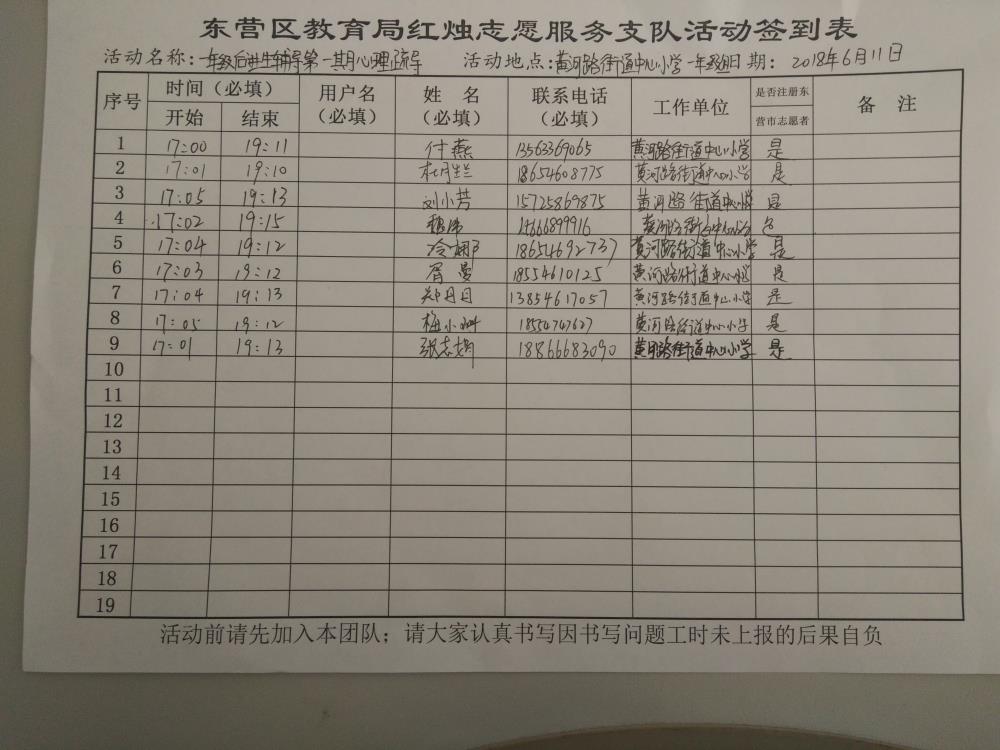 东营区教育局红烛志愿服务支队活动签到表
活动名称：一年级后进生辅导第一期心理疏导 活动地点：黄河路街道中心小学一年级组 日期：2018年6月11日
序号 时间（必填） 用户名（必填） 姓名（必填） 联系电话（必填） 工作单位 是否注册东营市志愿者 备注
开始 结束
1 17:00 19:11 付燕 13563369065 黄河路街道中心小学 是
2 17:01 19:10 杜月兰 18654608775 黄河路街道中心小学 是
3 17:05 19:13 刘小芳 15725869875 黄河路街道中心小学 是
4 17:02 19:15 14666899916 黄河路街道中心小学 是
5 17:04 19:12 冷 18654692737 黄河路街道中心小学 是
6 17:03 19:12 胥曼 18554610125 黄河路街道中心小学 是
7 17:04 19:13 郑月日 13854617057 黄河路街道中心小学 是
8 17:05 19:12 梅小 18554747627 黄河路街道中心小学 是
9 17:01 19:13 张志娟 18866683090 黄河路街道中心小学 是
10
11
12
13
14
15
16
17
18
19
活动前请先加入本团队；请大家认真书写因书写问题工时未上报的后果自负